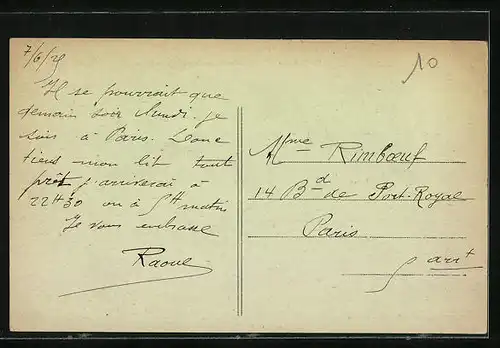 7/6/25
Il se pourrait que
demain soir lundi je
sois à Paris. Donc
tiens mon lit tout
prêt j'arriverai à
22H30 ou à 5H matin
Je vous embrasse
Raoul
10
Mme Rimbœuf
14 Bd de Port-Royal
Paris
5 arrt